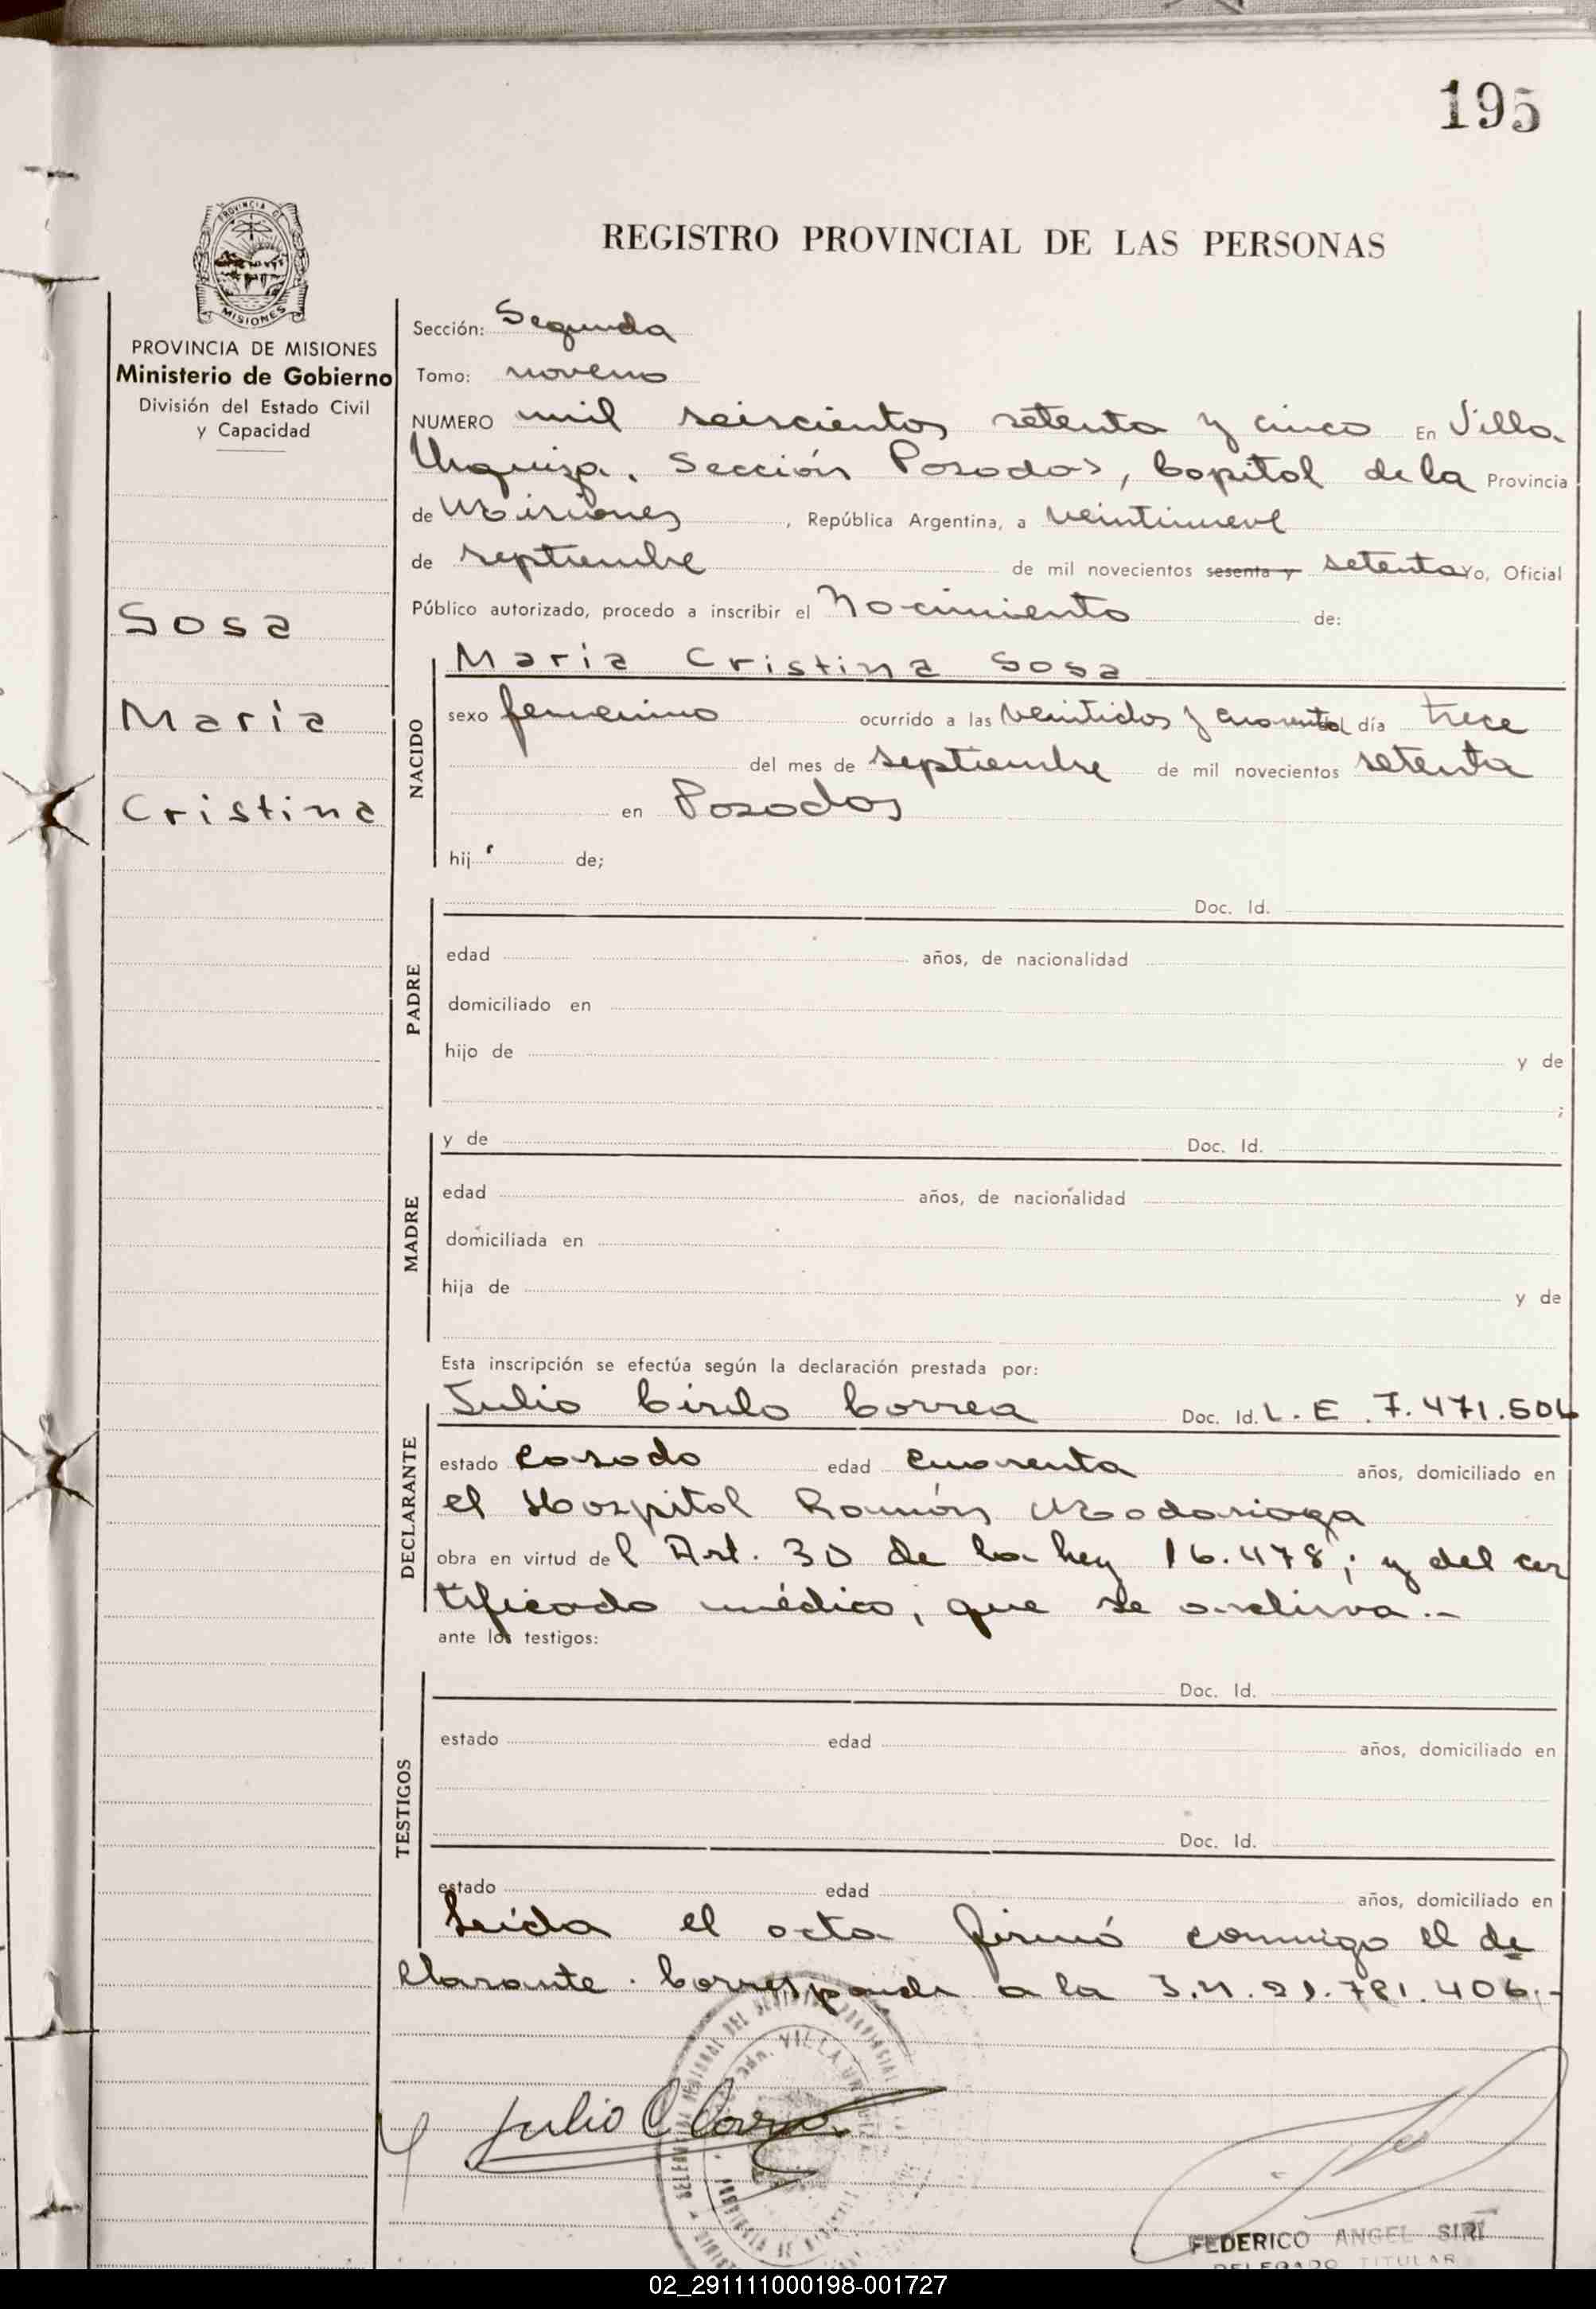 195
PROVINCIA DE
MISIONES
REGISTRO PROVINCIAL DE LAS PERSONAS
PROVINCIA DE MISIONES
Ministerio de Gobierno
División del Estado Civil
y Capacidad
Sosa
María
Cristina
Sección: Segunda
Tomo: noveno
NUMERO mil seiscientos setenta y cinco En Villa
Urquiza, Sección Posadas, Capital de la Provincia
de Misiones, República Argentina, a veintinueve
de septiembre de mil novecientos sesenta y setenta Yo, Oficial
Público autorizado, procedo a inscribir el Nacimiento de:
NACIDO
María Cristina Sosa
sexo femenino ocurrido a las veintidos y cuarenta del día trece
del mes de septiembre de mil novecientos setenta
en Posadas
hij de;
PADRE
Doc. Id.
edad años, de nacionalidad
domiciliado en
hijo de y de
;
MADRE
y de Doc. Id.
edad años, de nacionalidad
domiciliada en
hija de y de
Esta inscripción se efectúa según la declaración prestada por:
DECLARANTE
Julio Cirilo Correa Doc. Id. L.E. 7.471.506
estado casado edad cuarenta años, domiciliado en
el Hospital Ramón Madariaga
obra en virtud del Art. 30 de la ley 16.478; y del cer
tificado médico, que se archiva.-
ante los testigos:
TESTIGOS
Doc. Id.
estado edad años, domiciliado en
Doc. Id.
estado edad años, domiciliado en
Leída el acta firmó conmigo el de
clarante. Corresponde a la I.M. 21.781.406.-
Julio C Correa
VILLA URQUIZA
FEDERICO ANGEL SIRI
DELEGADO TITULAR
02_291111000198-001727